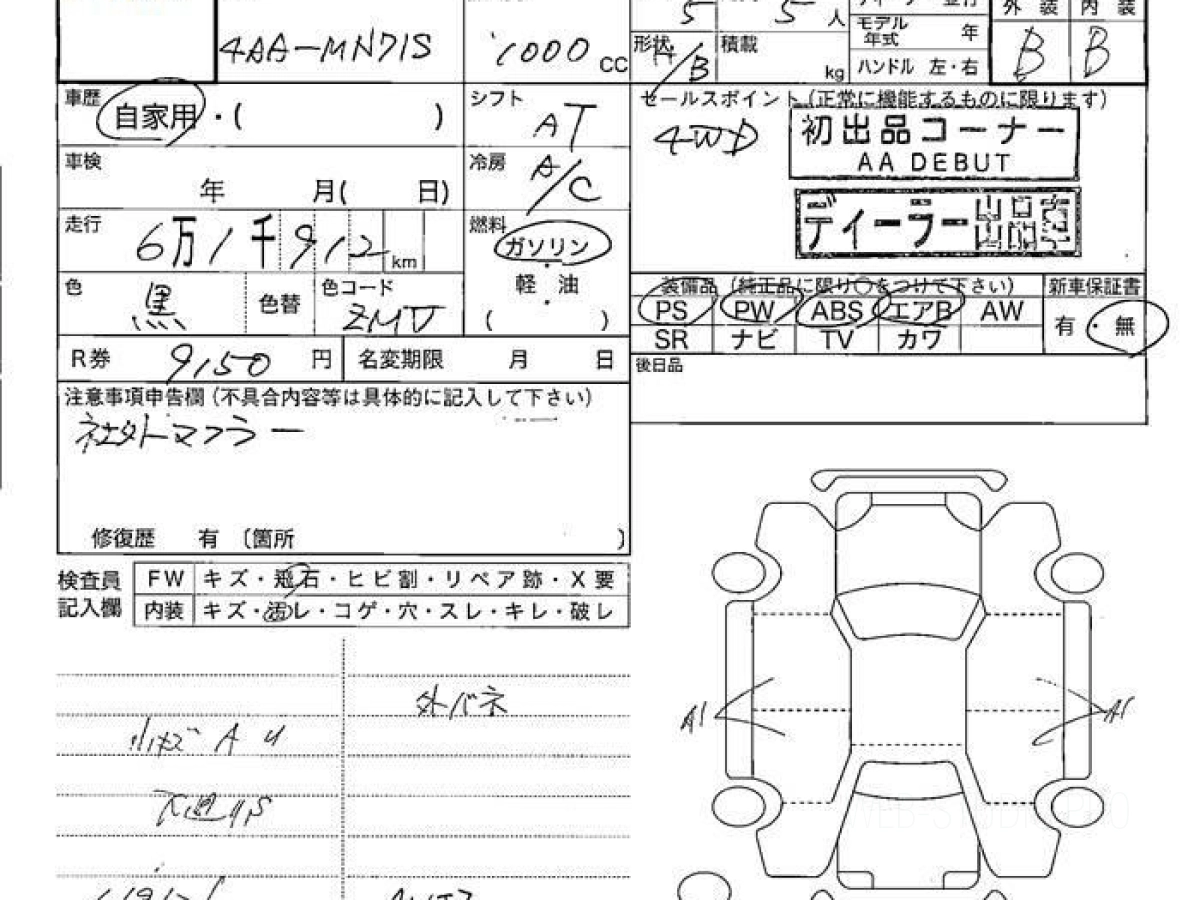 5 5 人
モデル年式 年
外装 内装
4AA-MN71S 1000 CC
形状 /B 積載 kg
ハンドル 左・右
B B
車歴 自家用・( )
シフト AT
セールスポイント(正常に機能するものに限ります)
4WD
初出品コーナー
AA DEBUT
車検 年 月( 日)
冷房 A/C
ディーラー出品車
走行 6万1千912 km
燃料 ガソリン
軽・油
( )
色 黒 色替 色コード ZMV
装備品(純正品に限り○をつけて下さい) 新車保証書
PS PW ABS エアB AW 有・無
SR ナビ TV カワ
R券 9150 円 名変期限 月 日
後日品
注意事項申告欄(不具合内容等は具体的に記入して下さい)
社外マフラー
修復歴 有〔箇所 〕
検査員記入欄
FW キズ・飛石・ヒビ割・リペア跡・X要
内装 キズ・汚レ・コゲ・穴・スレ・キレ・破レ
外バネ
小キズ A U
下廻りS
A1 A1